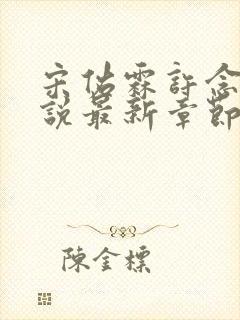 宋佔霖許念
說最新章節
陳金標